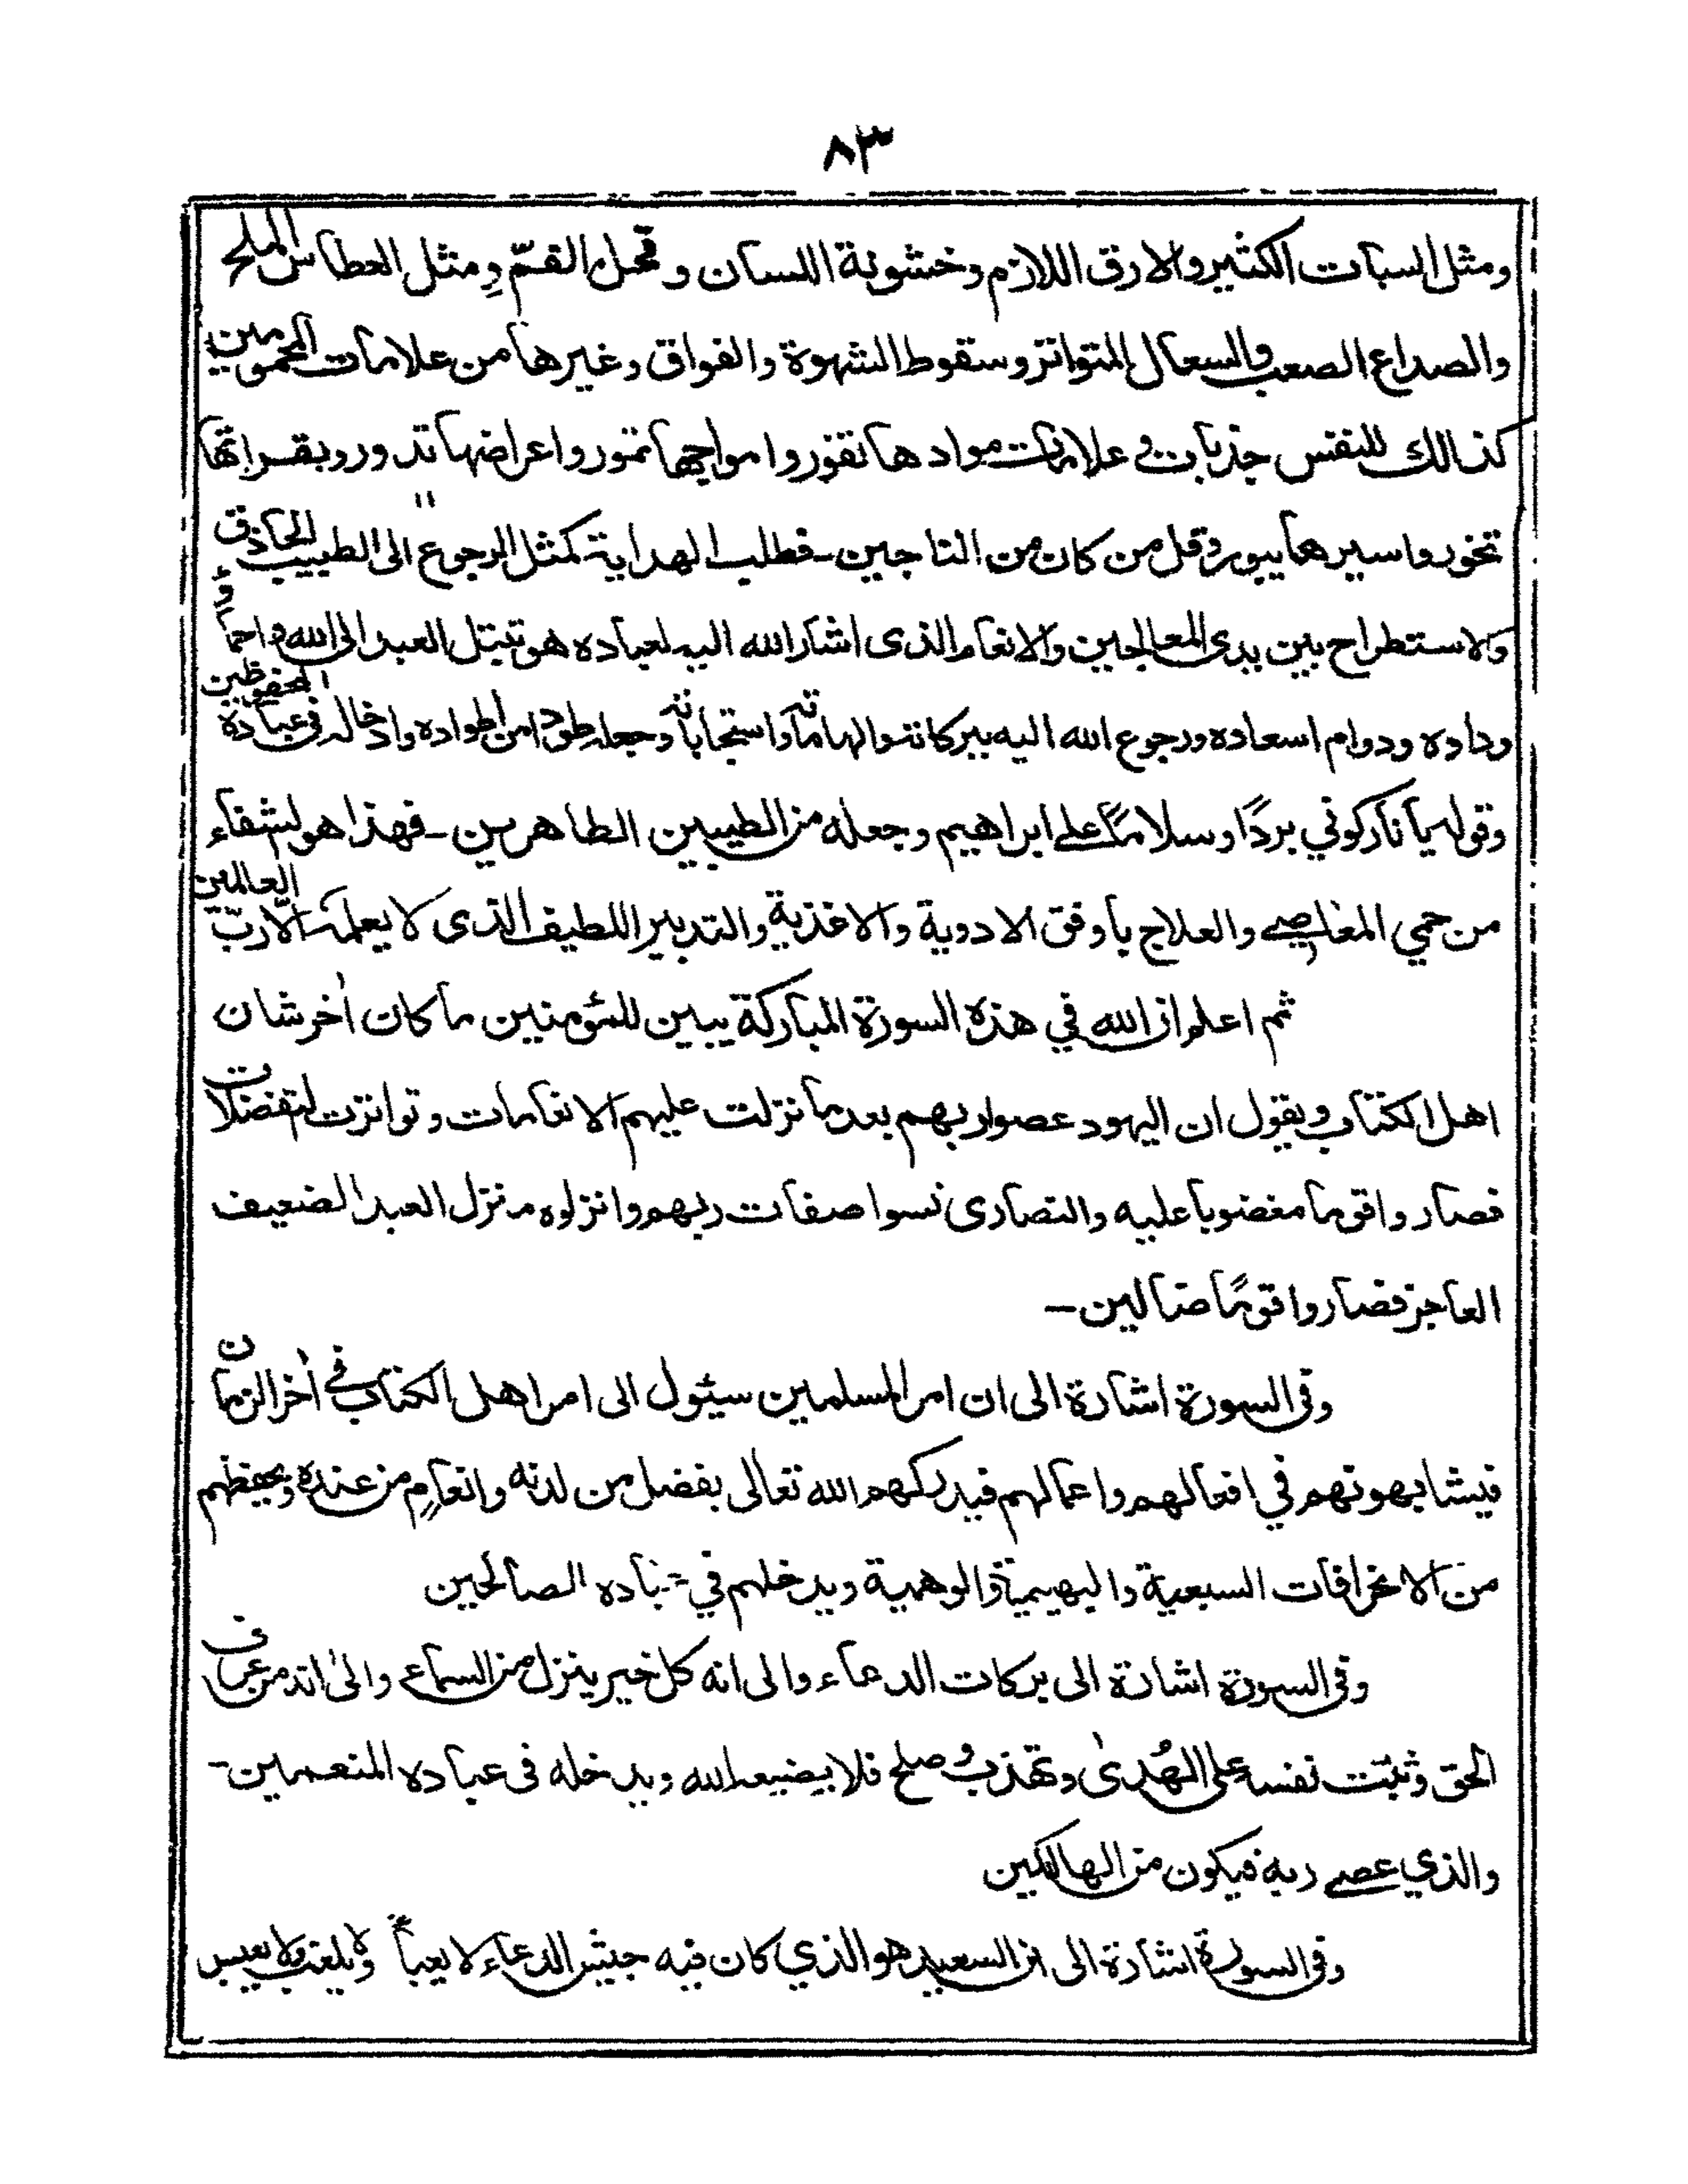 ٨٣
ومثل السبات الكثير والارق اللازم وخشونة اللسان وقحل الفم ومثل العطاس الملح
والصداع الصعب والسعال المتواتر وسقوط الشهوة والفواق وغيرها من علامات المحمومين
كذالك للنفس جذبات وعلامات موادها تفور وامواجها تمور واعراضها تدور وبقراتها
تخور واسيرها يبور وقل من كان من الناجين۔ فطلب الهداية كمثل الرجوع الى الطبيب الحاذق
والاستطراح بين يدى المعالجين والانعام الذى اشار الله اليه لعباده هو تبتل العبد الى الله واحماؤ
وداده ودوام اسعاده ورجوع الله اليه ببركاته والهاماته واستجاباته وجعله طودا من اطواده وادخاله فى عباده المحفوظين
وقوله يا نار كوني بردًا وسلامًا على ابراهيم وجعله من الطيبين الطاهرين۔ فهذا هو لشفاء
من حمي المعاصے والعلاج باوفق الادوية والاغذية والتدبير اللطيف الذى لا يعلمه الّا ربّ العالمين
ثم اعلم ان الله في هذه السورة المباركة يبين للمؤمنين ما كان اٰخر شان
اهل الكتاب ويقول ان اليهود عصوا ربهم بعد ما نزلت عليهم الانعامات وتواترت لتفضلات
فصاروا قوما مغضوبا عليه والنصارى نسوا صفات ربهم وانزلوه منزل العبد الضعيف
العاجز فصاروا قومًا ضالين۔
وفى السورة اشارة الى ان امر المسلمين سيئول الى امر اهل الكتاب فے اٰخر الزمان
فيشابهونهم في افعالهم واعمالهم فيدركهم الله تعالى بفضل من لدنه وانعامٍ من عنده ويحفظهم
من الانحرافات السبعية والبهيمية والوهمية ويدخلهم في عباده الصالحين
وفى السورة اشارة الى بركات الدعاء والى انه كل خير ينزل من السماء والىٰ انه من عرف
الحق وثبت نفسه على الهُدىٰ وتهذب وصلح فلا يضيعه الله ويدخله فى عباده المنعمين۔
والذي عصے ربه فيكون من الهالكين
وفى السورة اشارة الى ان السعيد هو الذي كان فيه جيش الدعاء لا يعبأ ولا يلغب ولا يعبس